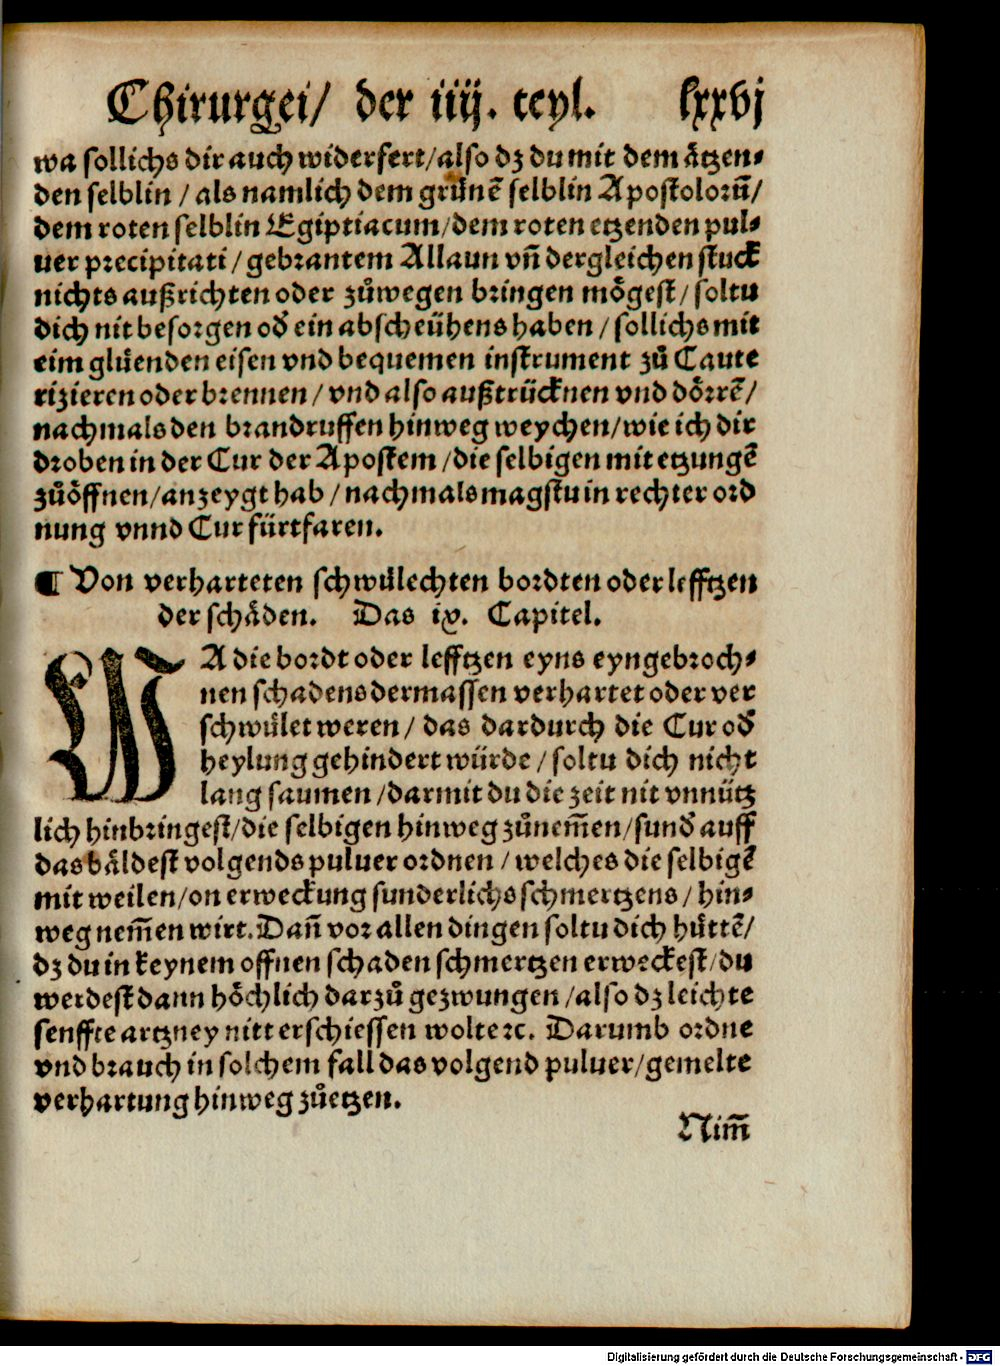 Chirurgei/ der iiij. teyl. lxxvj
wa sollichs dir auch widerfert/also dz du mit dem ätzen⸗
den selblin / als namlich dem grünē selblin Apostolorū/
dem roten selblin Egiptiacum/dem roten etzenden pul⸗
uer precipitati / gebrantem Allaun vñ dergleichen stuck
nichts außrichten oder zůwegen bringen mögest / soltu
dich nit besorgen oď ein abscheühens haben / sollichs mit
eim glüenden eisen vnd bequemen instrument zů Caute
rizieren oder brennen / vnd also außtrücknen vnd dörrē/
nachmals den brandruffen hinweg weychen/wie ich dir
droben in der Cur der Apostem /die selbigen mit etzungē
zůöffnen/anzeygt hab / nachmals magstu in rechter ord
nung vnnd Cur fürtfaren.
¶ Von verharteten schwülechten bordten oder lefftzen
der schäden. Das ix. Capitel.
WA die bordt oder lefftzen eyns eyngebroch⸗
nen schadens dermassen verhartet oder ver
schwület weren / das dardurch die Cur oď
heylung gehindert würde / soltu dich nicht
lang saumen /darmit du die zeit nit vnnütz
lich hinbringest/die selbigen hinweg zůnem̃en/sunď auff
das bäldest volgends puluer ordnen / welches die selbigē
mit weilen/on erweckung sunderlichs schmertzens / hin⸗
weg nem̃en wirt. Dañ vor allen dingen soltu dich hüttē/
dz du in keynem offnen schaden schmertzen erweckest/du
werdest dann höchlich darzů gezwungen /also dz leichte
senffte artzney nitt erschiessen wolte ꝛc. Darumb ordne
vnd brauch in solchem fall das volgend puluer/gemelte
verhartung hinweg zůetzen.
Nim̃
Digitalisierung gefördert durch die Deutsche Forschungsgemeinschaft - DFG